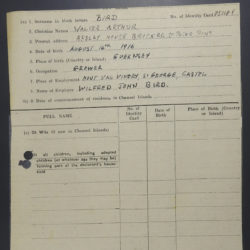 (1). Surname in block letters BIRD No. of Identity Card
(2). Christian Names WALTER ARTHUR
(3). Postal address
(4). Date of birth AUGUST 16TH 1916
(5). Place of birth (Country or Island) GUERNSEY
(6). Occupation GROWER
(7). Place of Employment VINERY, ST GEORGE, CASTEL
Name of Employer WILFRED JOHN BIRD.
(8). Date of commencement of residence in Channel Islands
FULL NAME
No. of Identity Card
Date of Birth
Place of Birth (Country or Island)
(9) Wife (if now in Channel Islands)
all children, including adopted
children
forming part of the declarant's house
hold